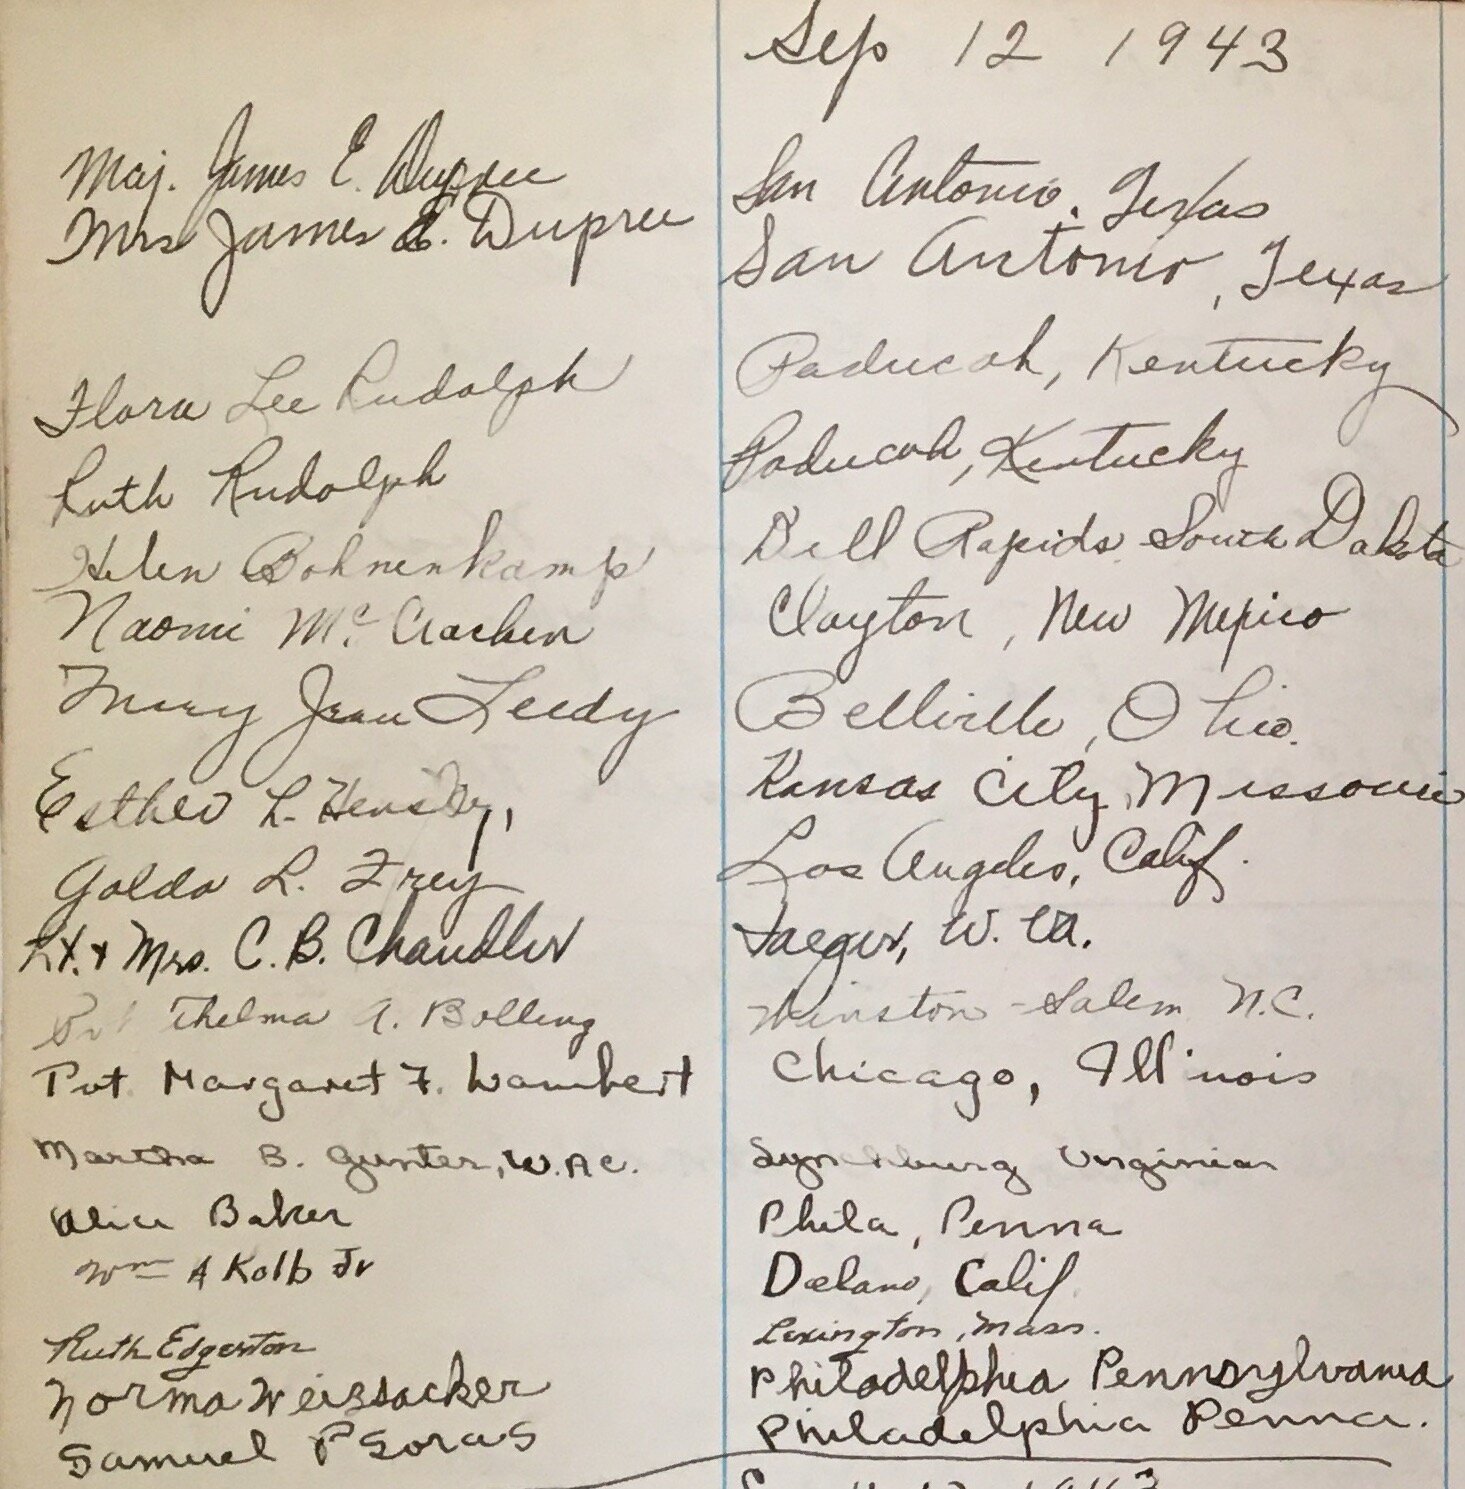 Sep 12 1943
Maj. James E. Dupree San Antonio, Texas
Mrs James E. Dupree San Antonio, Texas
Flora Lee Rudolph Paducah, Kentucky
Ruth Rudolph Paducah, Kentucky
Helen Bohnenkamp Dell Rapids South Dakota
Naomi McCracken Clayton, New Mexico
Mary Jean Leedy Bellville, Ohio.
Esther L. Hensley, Kansas City, Missouri
Golda L. Frey Los Angeles, Calif.
Lt. & Mrs. C. B. Chandler Iaeger, W. Va.
Pvt Thelma A. Bolling Winston-Salem N.C.
Pvt. Margaret F. Wambert Chicago, Illinois
Martha B. Gunter, W.A.C. Lynchburg Virginia
Alice Baker Phila, Penna
Wm A Kolb Jr Delano, Calif.
Ruth Edgerton Lexington, Mass.
Norma Weissacker Philadelphia Pennsylvania
Samuel P Soras Philadelphia Penna.